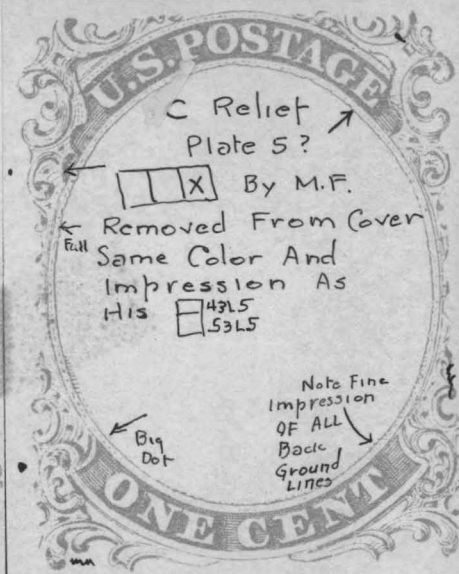 U.S. POSTAGE
C Relief
Plate 5?
X By M.F.
Full
Removed From Cover
Same Color And
Impression As
His 43L5
53L5
Note Fine
Impression
OF ALL
Back
Ground
Lines
Big
Dot
ONE CENT